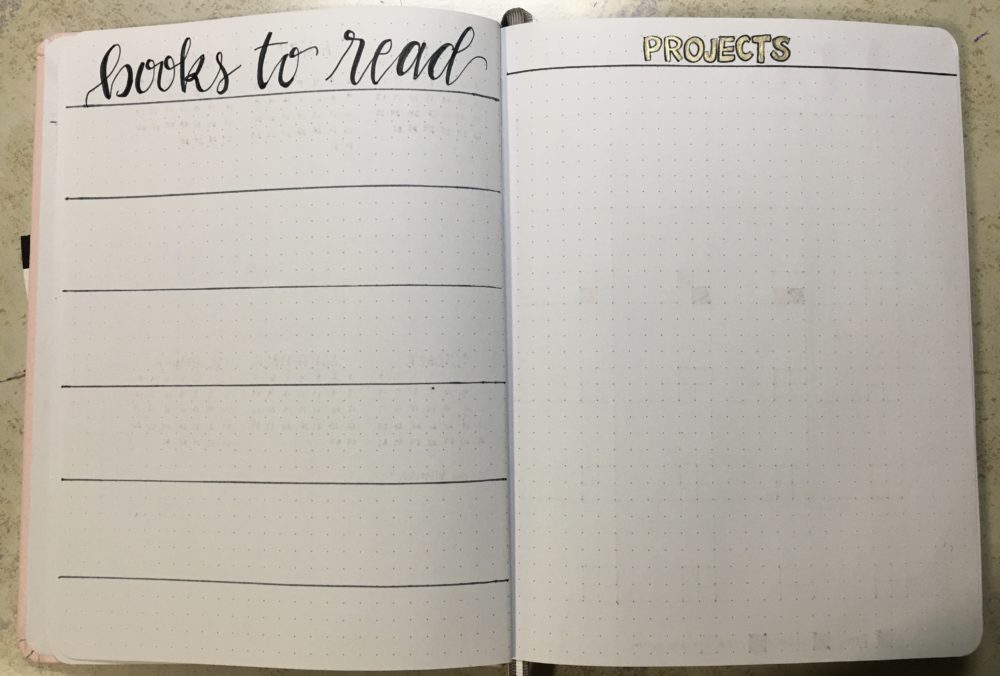 books to read
PROJECTS